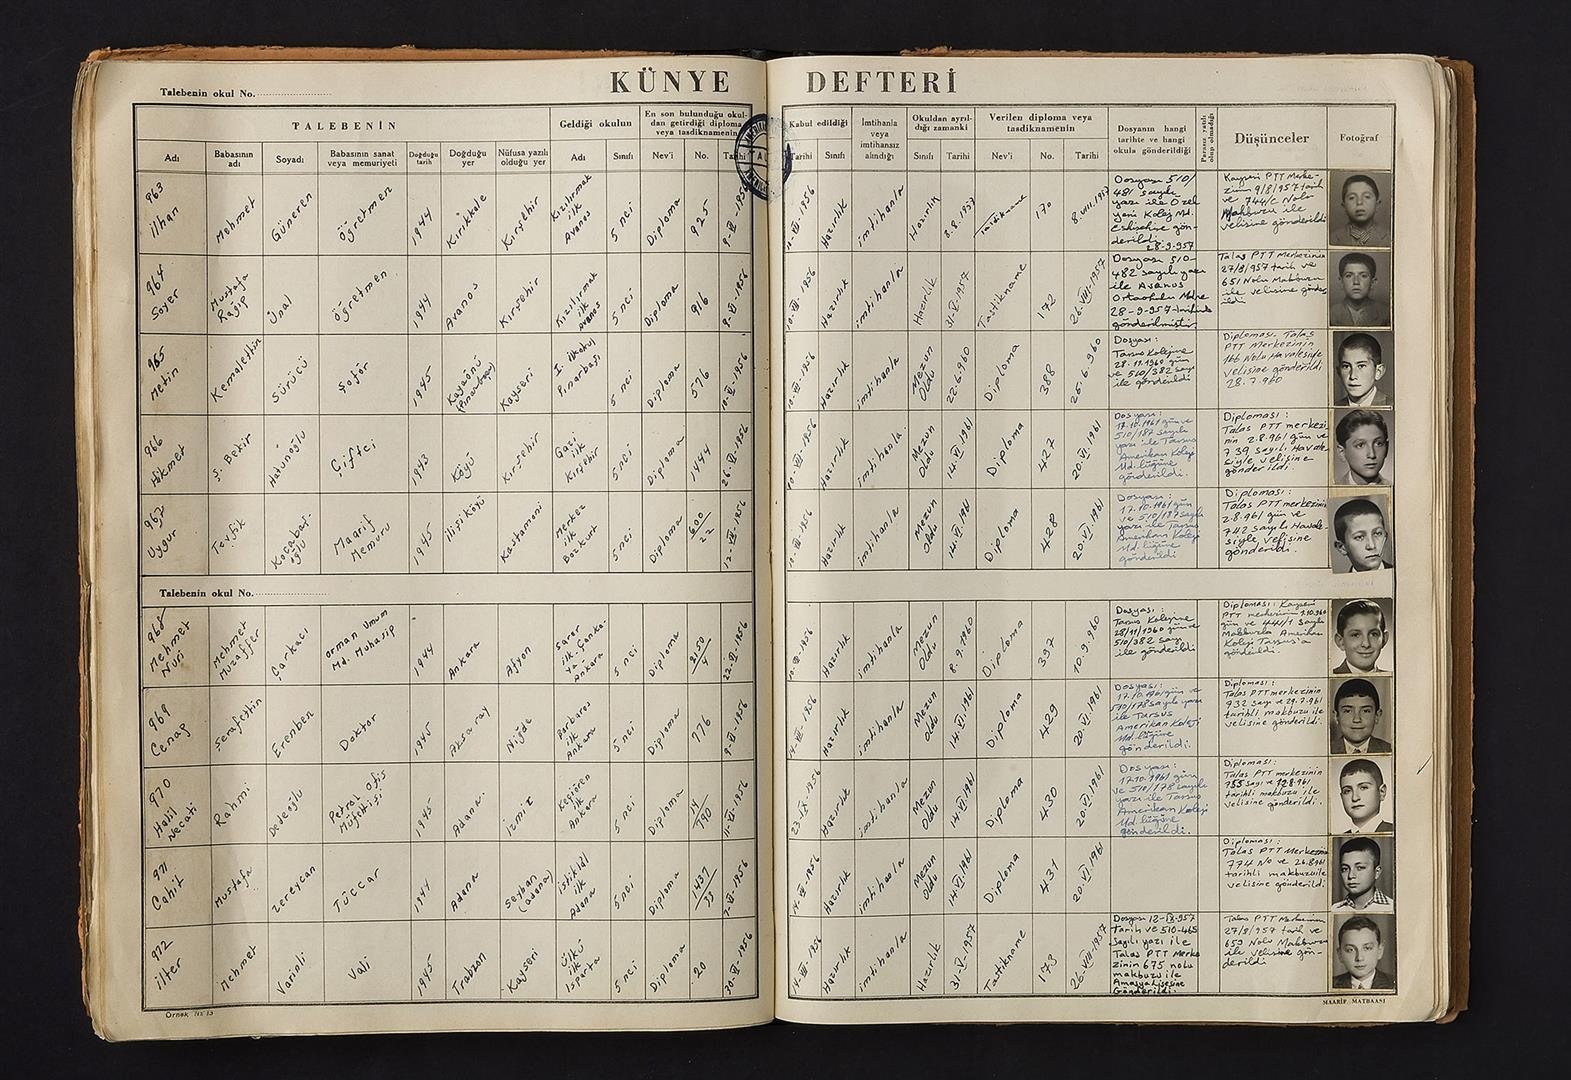 KÜNYE DEFTERİ
Talebenin okul No.
TALEBENİN
Geldiği okulun
En son bulunduğu okul-
dan getirdiği diploma
veya tasdiknamenin
Kabul edildiği
İmtihanla
veya
imtihansız
alındığı
Okuldan ayrıl-
dığı zamanki
Verilen diploma veya
tasdiknamenin
Dosyanın hangi
tarihte ve hangi
okula gönderildiği
Parasız yatılı
olup olmadığı
Düşünceler
Fotoğraf
Adı
Babasının
adı
Soyadı
Babasının sanat
veya memuriyeti
Doğduğu
tarih
Doğduğu
yer
Nüfusa yazılı
olduğu yer
Adı
Sınıfı
Nev'i
No.
Tarihi
Tarihi
Sınıfı
Sınıfı
Tarihi
Nev'i
No.
Tarihi
963
İlhan
Mehmet
Güneren
Öğretmen
1944
Kırıkkale
Kırşehir
Kızılırmak
ilk
Avanos
5 nci
Diploma
925
9-VI-1956
Hazırlık
imtihanla
Hazırlık
8.8.1957
Tastikname
170
8.VIII.1957
Dosyası 510/
481 sayılı
yazı ile Özel
Yeni Kolej Md.
Eskişehire gön-
derildi.
28-9-957
Kayseri PTT Merke-
zinin 9/8/957 tarih
ve 744/C Nolu
Makbuzu ile
velisine gönderildi
964
Soyer
Mustafa
Ragıp
Ünal
Öğretmen
1944
Avanos
Kırşehir
Kızılırmak
ilk
Avanos
5 nci
Diploma
916
9-VI-1956
Hazırlık
imtihanla
Hazırlık
31-V-1957
Tastikname
172
26-VIII-1957
Dosyası 510-
482 sayılı yazı
ile Avanos
Ortaokulu Md.ne
28-9-957 tarihinde
gönderilmiştir
Talas PTT Merkezinin
27/8/957 tarih ve
651 Nolu Makbuzu
ile velisine gönder
ildi
965
Metin
Kemalettin
Sürücü
Şoför
1945
Kayseri
I. ilkokul
Pınarbaşı
5 nci
Diploma
576
Hazırlık
imtihanla
Mezun
Oldu
22-6-960
Diploma
388
25-6-960
Dosyası:
Tarsus Kolejine
28.11.1960 gün
ve 510/382 sayı
ile gönderildi
Diploması Talas
PTT Merkezinin
166 Nolu Havalesiyle
velisine gönderildi
28.7.960
966
Hikmet
Ş. Bekir
Hatunoğlu
Çiftçi
1943
Köyü
Kırşehir
Gazi
ilk
Kırşehir
5 nci
Diploma
1444
26-VI-1956
Hazırlık
imtihanla
Mezun
Oldu
14-VI-1961
Diploma
427
20-VI-1961
Dosyası:
17.10.1961 gün ve
510/187 sayılı
yazı ile Tarsus
Amerikan Koleji
Md.lüğüne
gönderildi.
Diploması:
Talas PTT merkezi-
nin 2.8.961 gün ve
739 sayılı Havale-
siyle velisine
gönderildi.
967
Uygur
Tevfik
Kocabaş-
oğlu
Maarif
Memuru
1945
Kastamoni
Merkez
ilk
Bozkurt
5 nci
Diploma
600
22
Hazırlık
imtihanla
Mezun
Oldu
14-VI-1961
Diploma
428
20-VI-1961
Dosyası:
17.10.1961 gün
ve 510/187 sayılı
yazı ile Tarsus
Amerikan Koleji
Md.lüğüne
gönderildi
Diploması:
Talas PTT merkezinin
2.8.961 gün ve
742 sayılı Havale-
siyle velisine
gönderildi.
Talebenin okul No.
968
Mehmet
Nuri
Mehmet
Muzaffer
Çarıkcı
Orman Umum
Md. Muhasip
1944
Ankara
Afyon
Sarar
ilk Çanka-
ya-
Ankara
5 nci
Diploma
2150
4
22-VI-1956
Hazırlık
imtihanla
Mezun
Oldu
8.9.1960
Diploma
397
10.9.960
Dosyası:
Tarsus Kolejine
28/11/1960 gün ve
510/382 sayı
ile gönderildi
Diploması: Kayseri
PTT merkezinin 7.10.960
gün ve 441/1 Sayılı
Makbuzla Amerikan
Koleji Tarsus'a
gönderildi.
969
Cenap
Şerafettin
Erenben
Doktor
1945
Aksaray
Niğde
Barbaros
ilk
Ankara
5 nci
Diploma
776
9-VI-1956
Hazırlık
imtihanla
Mezun
Oldu
14-VI-1961
Diploma
429
20-VI-1961
Dosyası:
17.10.1961 gün ve
510/178 sayılı yazı
ile Tarsus
Amerikan Koleji
Md.lüğüne
gönderildi.
Diploması:
Talas PTT merkezinin
932 sayı ve 29.7.961
tarihli makbuzu ile
velisine gönderildi.
970
Halil
Necati
Rahmi
Dedeoğlu
Petrol Ofis
Müfettişi
1945
Adana
İzmir
Keçiören
ilk
Ankara
5 nci
Diploma
14
790
11-VI-1956
23-IX-1956
Hazırlık
imtihanla
Mezun
Oldu
14-VI-1961
Diploma
430
20-VI-1961
Dosyası:
17.10.1961 gün
ve 510/178 sayılı
yazı ile Tarsus
Amerikan Koleji
Md.lüğüne
gönderildi.
Diploması:
Talas PTT merkezinin
755 sayı ve 12.8.961
tarihli makbuzu ile
velisine gönderildi.
971
Cahit
Mustafa
Zereycan
Tüccar
1944
Adana
Seyhan
(Adana)
İstiklâl
ilk
Adana
5 nci
Diploma
1437
33
7-VI-1956
Hazırlık
imtihanla
Mezun
Oldu
14-VI-1961
Diploma
431
20-VI-1961
Diploması:
Talas PTT Merkezinin
774 No ve 26.8.961
tarihli makbuzu ile
velisine gönderildi
972
İlter
Mehmet
Varinli
Vali
1945
Trabzon
Kayseri
Ülkü
ilk
Isparta
5 nci
Diploma
20
30-VI-1956
Hazırlık
imtihanla
Hazırlık
31-V-1957
Tastikname
173
26-VIII-1957
Dosyası 12-IX-957
tarih ve 510-465
Sayılı yazı ile
Talas PTT Merke
zinin 675 nolu
makbuzu ile
Amasya Lisesine
Gönderildi.
Talas PTT Merkezinin
27/8/957 tarih ve
659 Nolu Makbuzu
ile velisine gön-
derildi
Örnek No 13
MAARİF MATBAASI